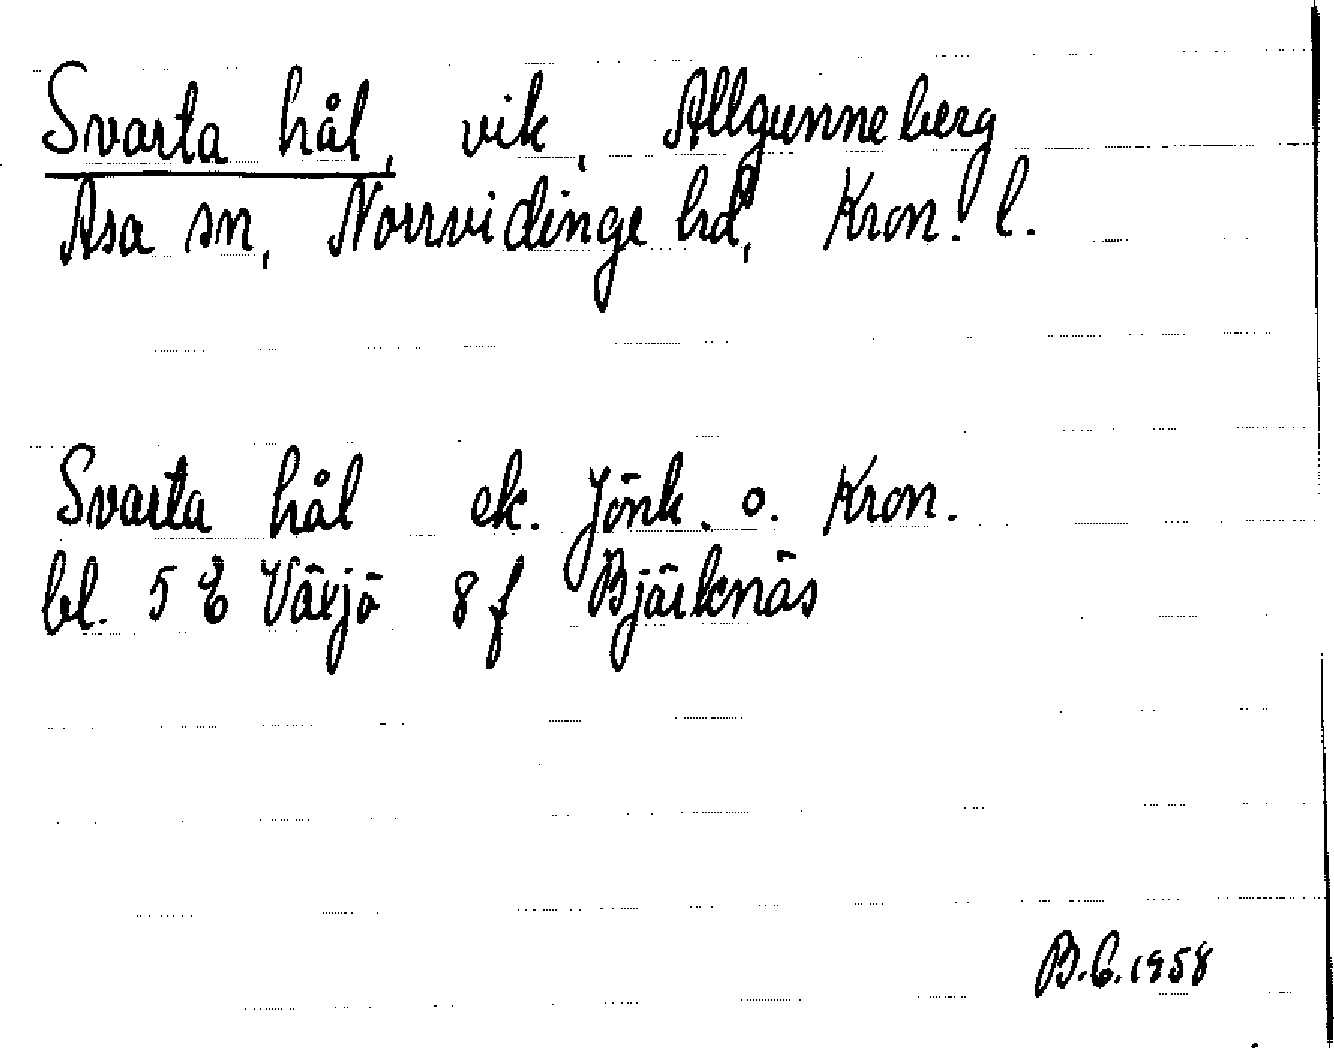 Svarta hål, vik, Allgunneberg
Asa sn, Norrvidinge hd, Kron. l.
Svarta hål ek. Jönk. o. Kron.
bl. 5 E Växjö 8 f Bjärknäs
B.G.1958